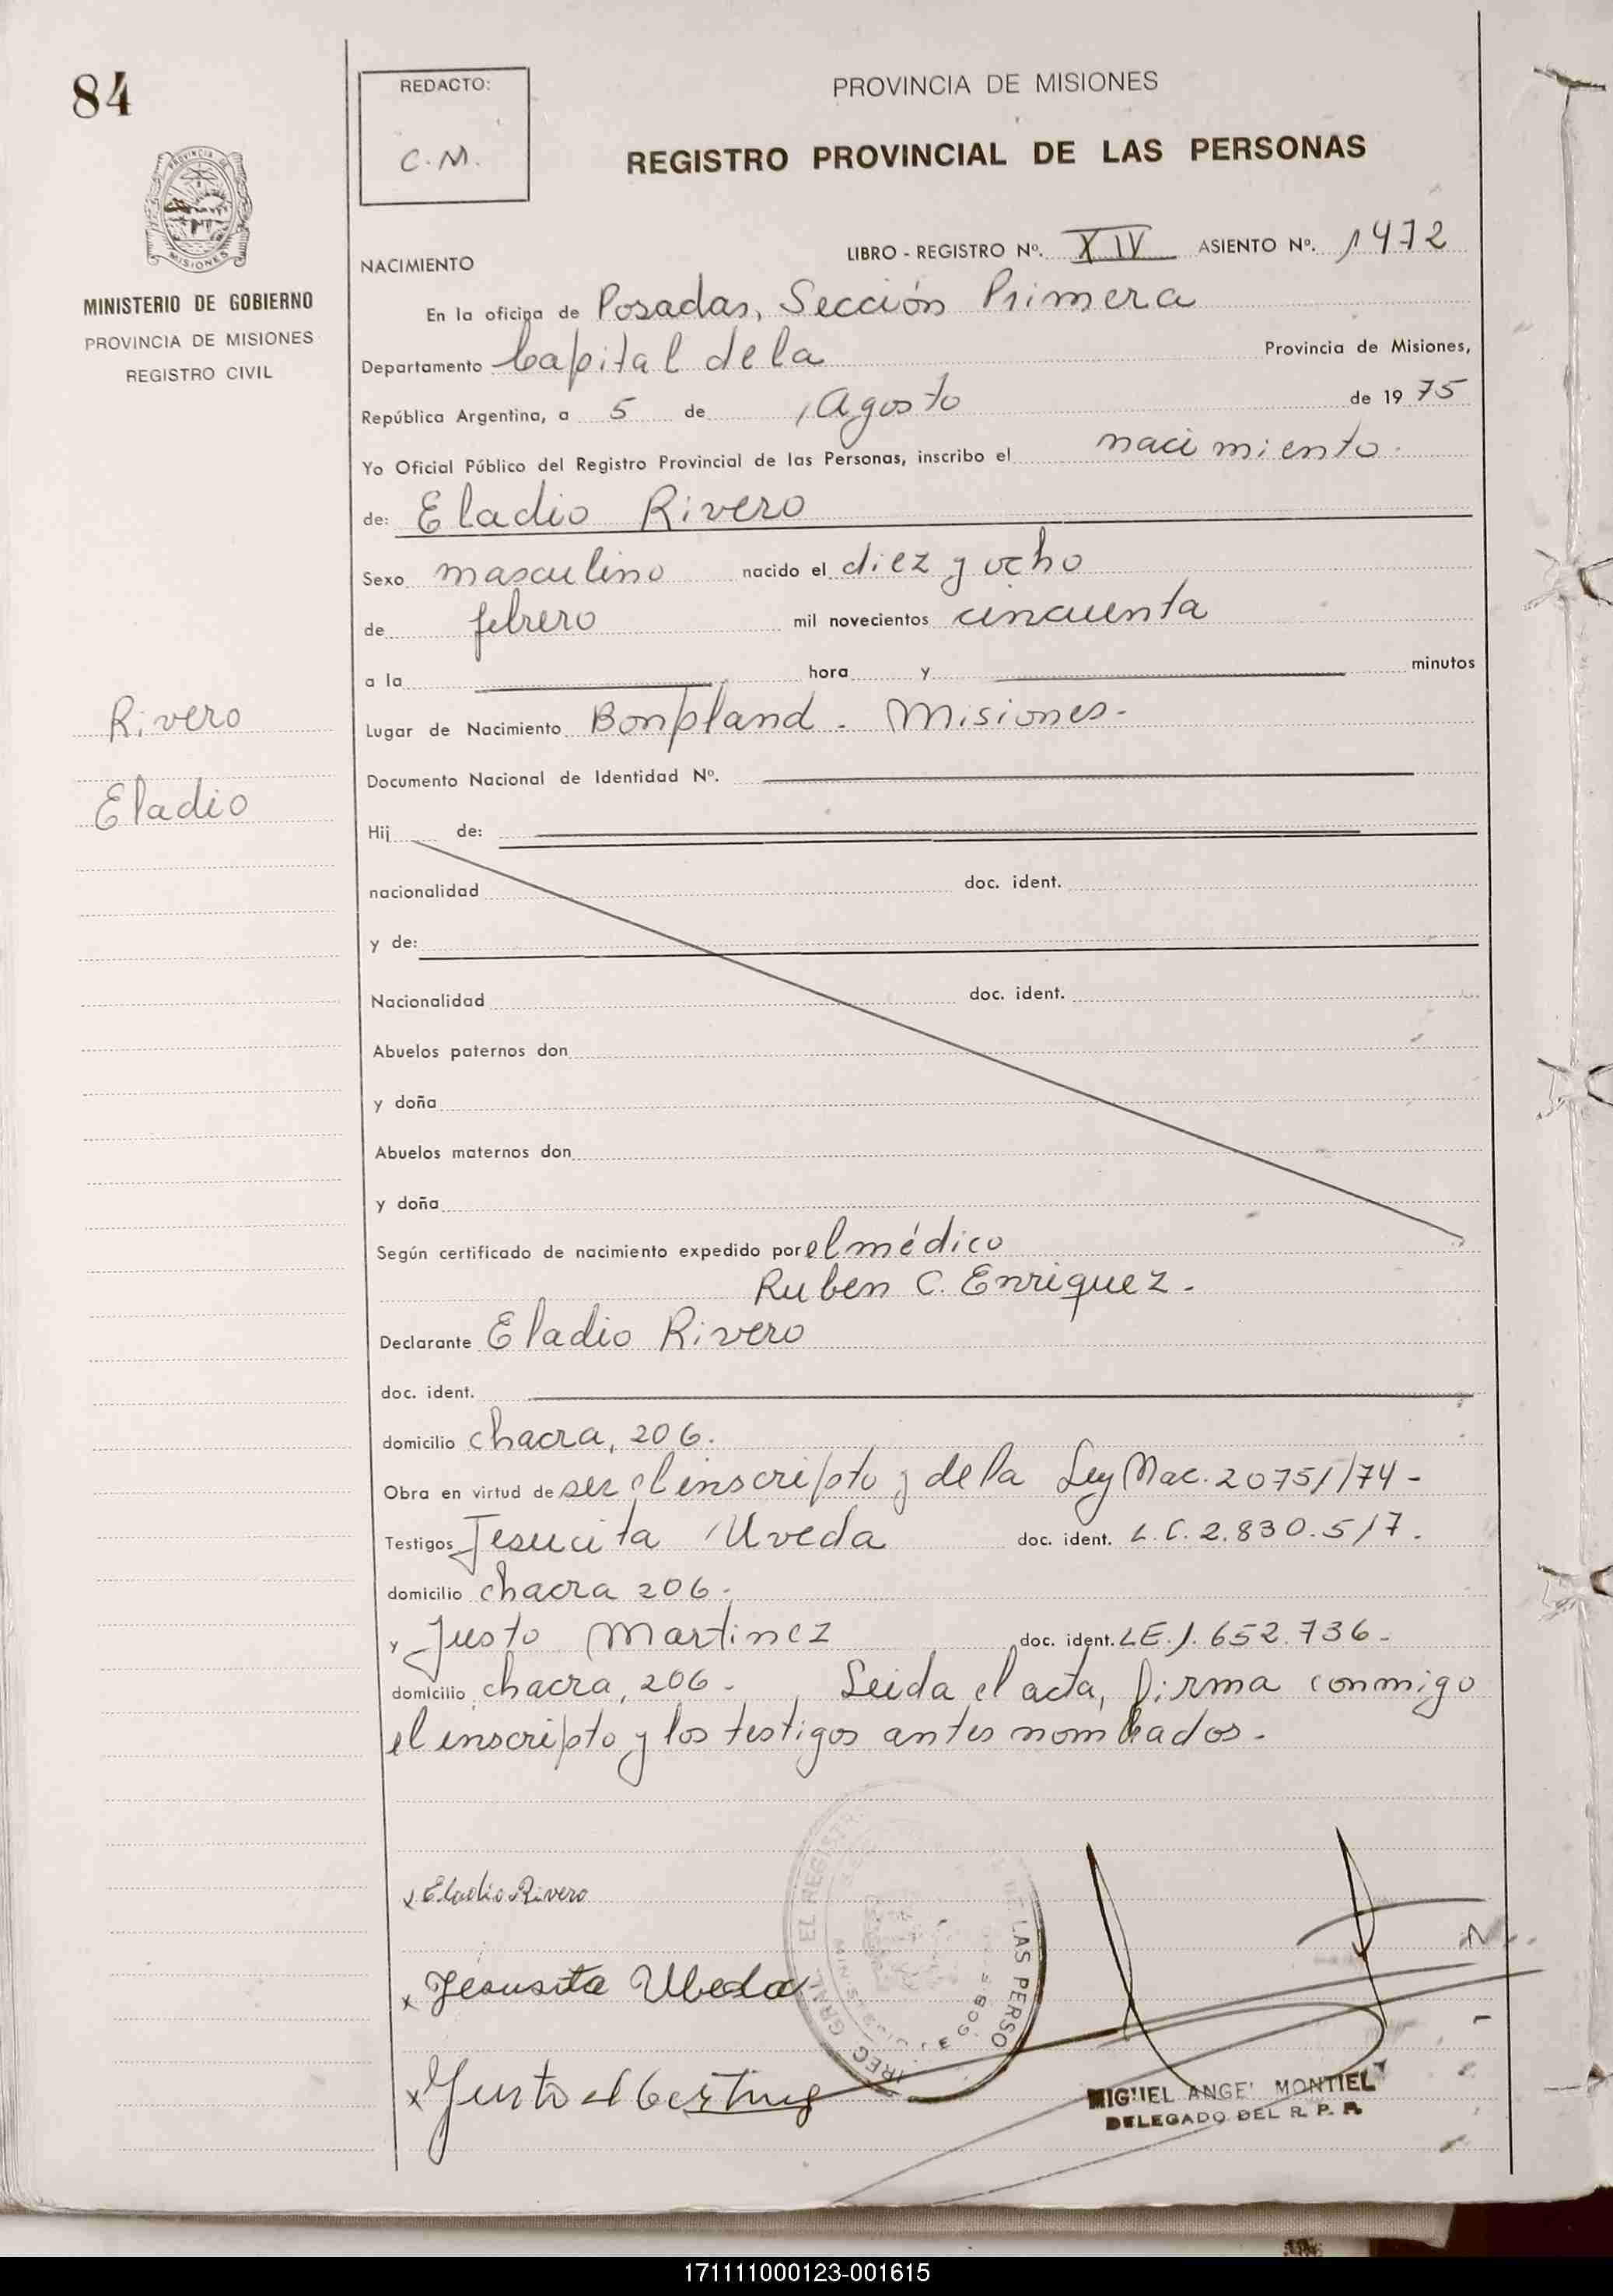 84
REDACTO:
C.M.
PROVINCIA DE MISIONES
REGISTRO PROVINCIAL DE LAS PERSONAS
PROVINCIA DE
MISIONES
MINISTERIO DE GOBIERNO
PROVINCIA DE MISIONES
REGISTRO CIVIL
NACIMIENTO LIBRO - REGISTRO Nº. XIV ASIENTO Nº. 1472
En la oficina de Posadas, Sección Primera
Departamento Capital de la Provincia de Misiones,
República Argentina, a 5 de Agosto de 1975
Yo Oficial Público del Registro Provincial de las Personas, inscribo el nacimiento.
de: Eladio Rivero
Sexo masculino nacido el diez y ocho
de febrero mil novecientos cincuenta
a la hora y minutos
Rivero
Lugar de Nacimiento Bonpland - Misiones-
Documento Nacional de Identidad Nº.
Eladio
Hij de:
nacionalidad doc. ident.
y de:
Nacionalidad doc. ident.
Abuelos paternos don
y doña
Abuelos maternos don
y doña
Según certificado de nacimiento expedido por el médico
Ruben C. Enriquez.
Declarante Eladio Rivero
doc. ident.
domicilio chacra, 206.
Obra en virtud de ser el inscripto y de la Ley Nac. 20751/74-
Testigos Jesucita Uveda doc. ident. L.C. 2.830.517.
domicilio chacra 206.
y Justo Martinez doc. ident. LE.1.652.736-
domicilio chacra, 206. Leida el acta, firma conmigo
el inscripto y los testigos antes nombados.
x Eladio Rivero
x Jesusita Ubeda
x Justo
MIGUEL ANGEL MONTIEL
DELEGADO DEL R. P. P.
171111000123-001615